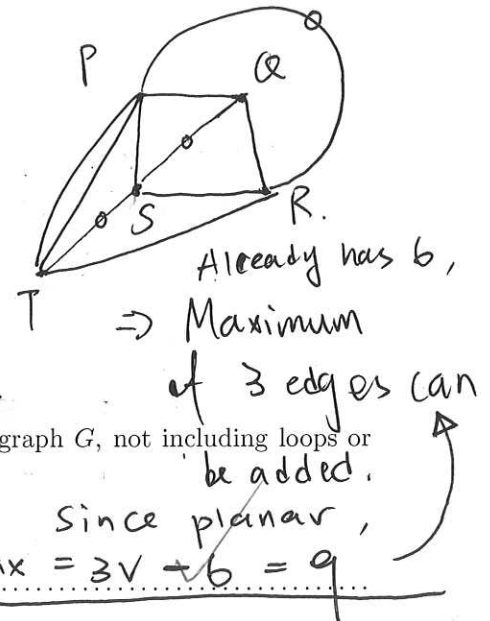 P
Q
S
R.
T
Already has 6,
⇒ Maximum
of 3 edges can
graph G, not including loops or
be added.
Since planar,
x = 3V - 6 = 9